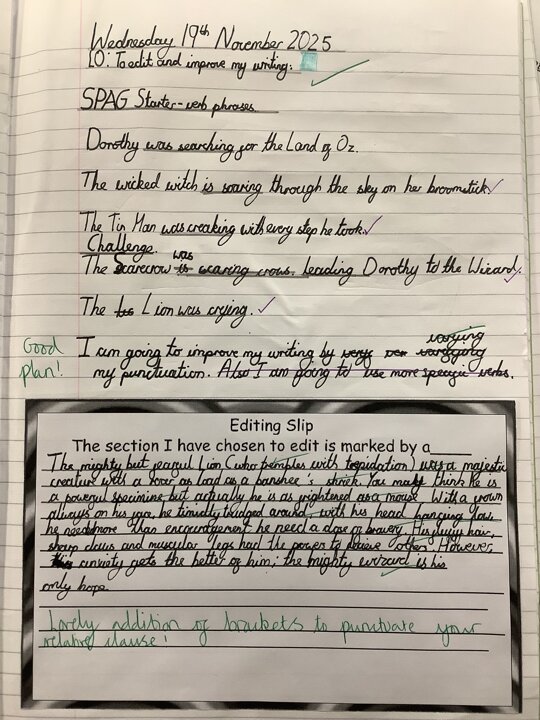 Wednesday 19th November 2025
LO: To edit and improve my writing.
SPAG Starter - verb phrases
Dorothy was searching for the Land of Oz.
The wicked witch is soaring through the sky on her broomstick
The Tin Man was creaking with every step he took.
Challenge.
was
The Scarecrow is scaring crows. leading Dorothy to the Wizard.
The Lion was crying.
varying
Good I am going to improve my writing by very
plan! my punctuation. Also I am going to use more specific verbs.
Editing Slip
The section I have chosen to edit is marked by a____
The mighty but fearful Lion (who trembles with trepidation) was a majestic
creature with a roar as load as a banshee's shriek. You may think he is
a powerful specimine but actually he is as frightened as a mouse. With a frown
always on his face, he timidly trudged around with his head hanging low.
he needs more than encouragement he need a dose of bravery. His hair,
sharp claws and muscular legs had the power to other. However,
anxiety gets the better of him; the mighty wizard is his
only hope.
Lovely addition of brackets to punctuate your
relative clause!